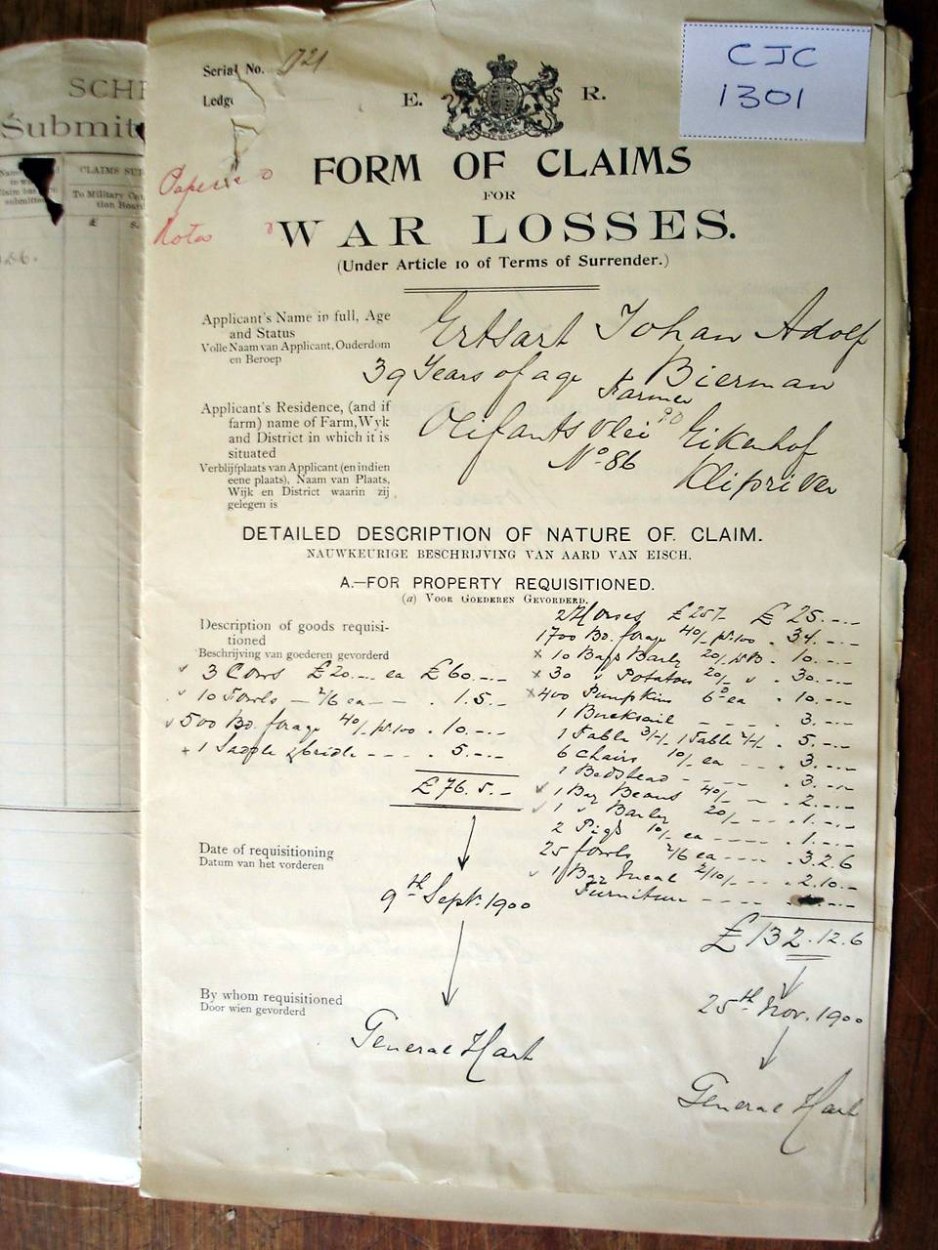 SCHE
Submit
CLAIMS SU
To Military
tion Boar
£ s.
CJC
1301
Serial No. 1721
Ledg
E. R.
Papers
Notes
FORM OF CLAIMS
FOR
WAR LOSSES.
(Under Article 10 of Terms of Surrender.)
Applicant's Name in full, Age
and Status
Volle Naam van Applicant, Ouderdom
en Beroep
Johan Adolf
Bierman
39 Years of age
Farmer
Applicant's Residence, (and if
farm) name of Farm, Wyk
and District in which it is
situated
Verblijfplaats van Applicant (en indien
eene plaats), Naam van Plaats,
Wijk en District waarin zij
gelegen is
Olifantsvlei
Eikenhof
No. 86
Kliprivier
DETAILED DESCRIPTION OF NATURE OF CLAIM.
NAUWKEURIGE BESCHRIJVING VAN AARD VAN EISCH.
A.—FOR PROPERTY REQUISITIONED.
(a) VOOR GOEDEREN GEVORDERD.
Description of goods requisi-
tioned
Beschrijving van goederen gevorderd
3 Cows £20.-.- ea £60.-.-
10 Fowls - 2/6 ea - - . 1.5.-
500 Bd. forage 40/- pr.100 . 10.-.-
1 Saddle & bridle - - - . 5.-.-
£76.5.-
2 Horses £25/- £25.-.-
1700 Bd. forage 40/- pr.100 . 34.-.-
10 Bags Barley 20/- pr B. . 10.-.-
30 " Potatoes 20/- " . 30.-.-
400 Pumpkins 6d ea . 10.-.-
1 Bucksail - - - - . 3.-.-
1 Table 1 Table . 5.-.-
6 Chairs 10/- ea - - . 3.-.-
1 Bedstead - - - - . 3.-.-
1 Bag Beans 40/- - - . 2.-.-
1 " Barley 20/- - - - . 1.-.-
2 Pigs 10/- ea - - - - . 1.-.-
25 fowls 2/6 ea - - - - . 3.2.6
1 Bag Meal 2/10/- - - - . 2.10.-
Furniture - - - -
£132.12.6
Date of requisitioning
Datum van het vorderen
9th Sept. 1900
25th Nov. 1900
By whom requisitioned
Door wien gevorderd
General Hart
General Hart